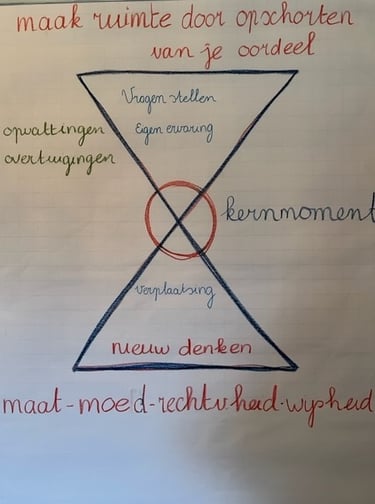 maak ruimte door opschorten
van je oordeel
Vragen stellen
opvattingen Eigen ervaring
overtuigingen
kernmoment
verplaatsing
nieuw denken
maat-moed-rechtv.heid-wijsheid